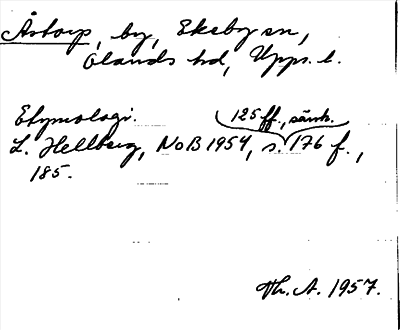 Åstorp, by, Eksby sn,
Olands hd, Upps. l.
Etymologi.
125 ff., särsk.
L. Hellberg, NoB 1954, s. 176 f.,
185.
Th. A. 1957.